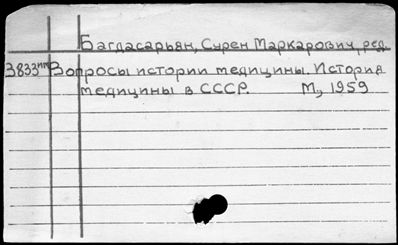 Багдасарьян, Сурен Маркарович, ред.
3833пп Вопросы истории медицины. История
медицины в СССР. М., 1959